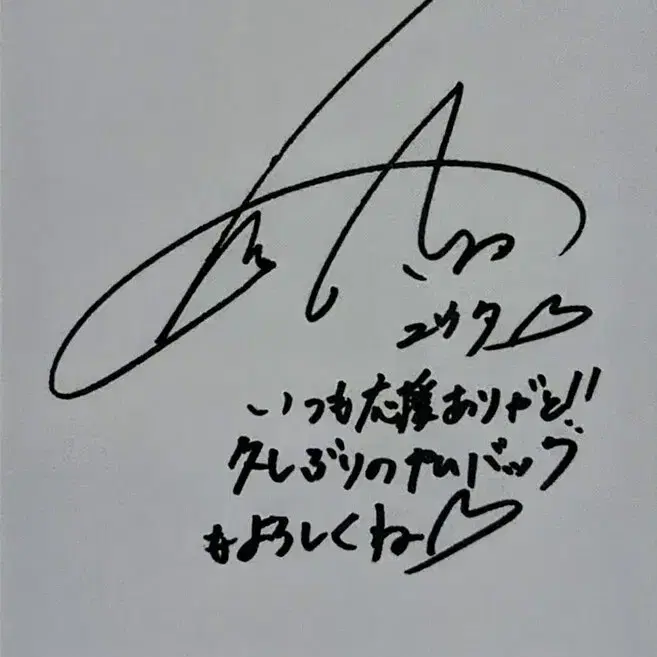 ユウタ♡
いつも応援ありがと!!
久しぶりのカムバック
もよろしくね♡